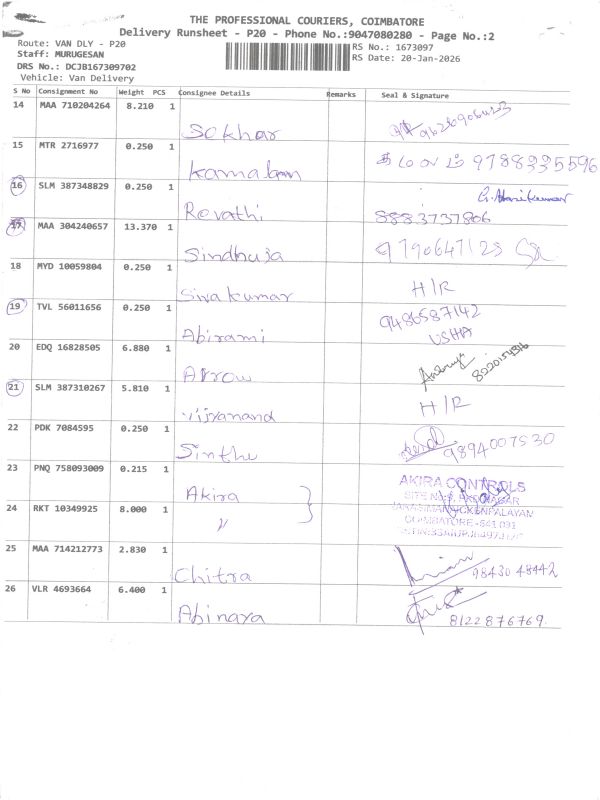 THE PROFESSIONAL COURIERS, COIMBATORE
Delivery Runsheet - P20 - Phone No.:9047080280 - Page No.:2
Route: VAN DLY - P20
Staff: MURUGESAN
DRS No.: DCJB167309702
Vehicle: Van Delivery
RS No.: 1673097
RS Date: 20-Jan-2026
S No Consignment No Weight PCS Consignee Details Remarks Seal & Signature
14 MAA 710204264 8.210 1 Sekhar
15 MTR 2716977 0.250 1 Kamalam கமலம் 9788335596
16 SLM 387348829 0.250 1 Revathi G. Harikumar 8883737806
17 MAA 304240657 13.370 1 Sindhuja 9790647123
18 MYD 10059804 0.250 1 Sivakumar H/R
19 TVL 56011656 0.250 1 Abirami 9486587142 USHA
20 EDQ 16828505 6.880 1 Arrow
21 SLM 387310267 5.810 1 Vijyanand H/R
22 PDK 7084595 0.250 1 Sinthu 9894007530
23 PNQ 758093009 0.215 1 Akira AKIRA CONTROLS
24 RKT 10349925 8.000 1 〃 COIMBATORE-641 031
25 MAA 714212773 2.830 1 Chitra 98430 48442
26 VLR 4693664 6.400 1 Abinaya 8122876769